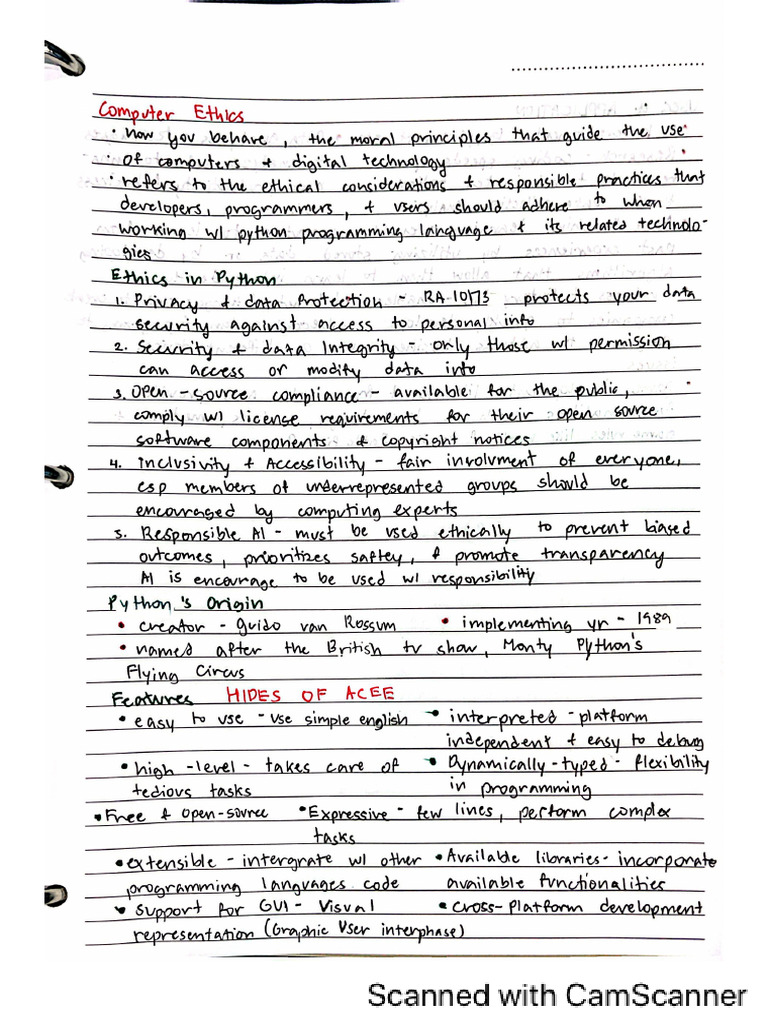 Computer Ethics
• how you behave, the moral principles that guide the use
• of computers & digital technology
• refers to the ethical considerations & responsible practices that
developers, programmers, & users should adhere to when
working w/ python programming language & its related technolo-
gies
Ethics in Python
1. Privacy & data Protection - RA 10173 protects your data
security against access to personal info
2. Security & data Integrity - only those w/ permission
can access or modify data info
3. Open - source compliance - available for the public,
comply w/ license requirements for their open source
software components & copyright notices
4. Inclusivity & Accessibility - fair involvment of everyone,
esp members of underrepresented groups should be
encouraged by computing experts
5. Responsible AI - must be used ethically to prevent biased
outcomes, prioritizes saftey, & promote transparency
AI is encourage to be used w/ responsibility
Python's Origin
• creator - guido van Rossum • implementing yr - 1989
• named after the British tv show, Monty Python's
Flying Circus
Features HIDES OF ACEE
• easy to use - use simple english • interpreted - platform
independent & easy to debug
• high - level - takes care of • Dynamically - typed - flexibility
tedious tasks in programming
• Free & open-source • Expressive - few lines, perform complex
tasks
• extensible - intergrate w/ other • Available libraries - incorporate
programming languages code available functionalities
• support for GUI - Visual • cross-platform development
representation (Graphic User interphase)
Scanned with CamScanner